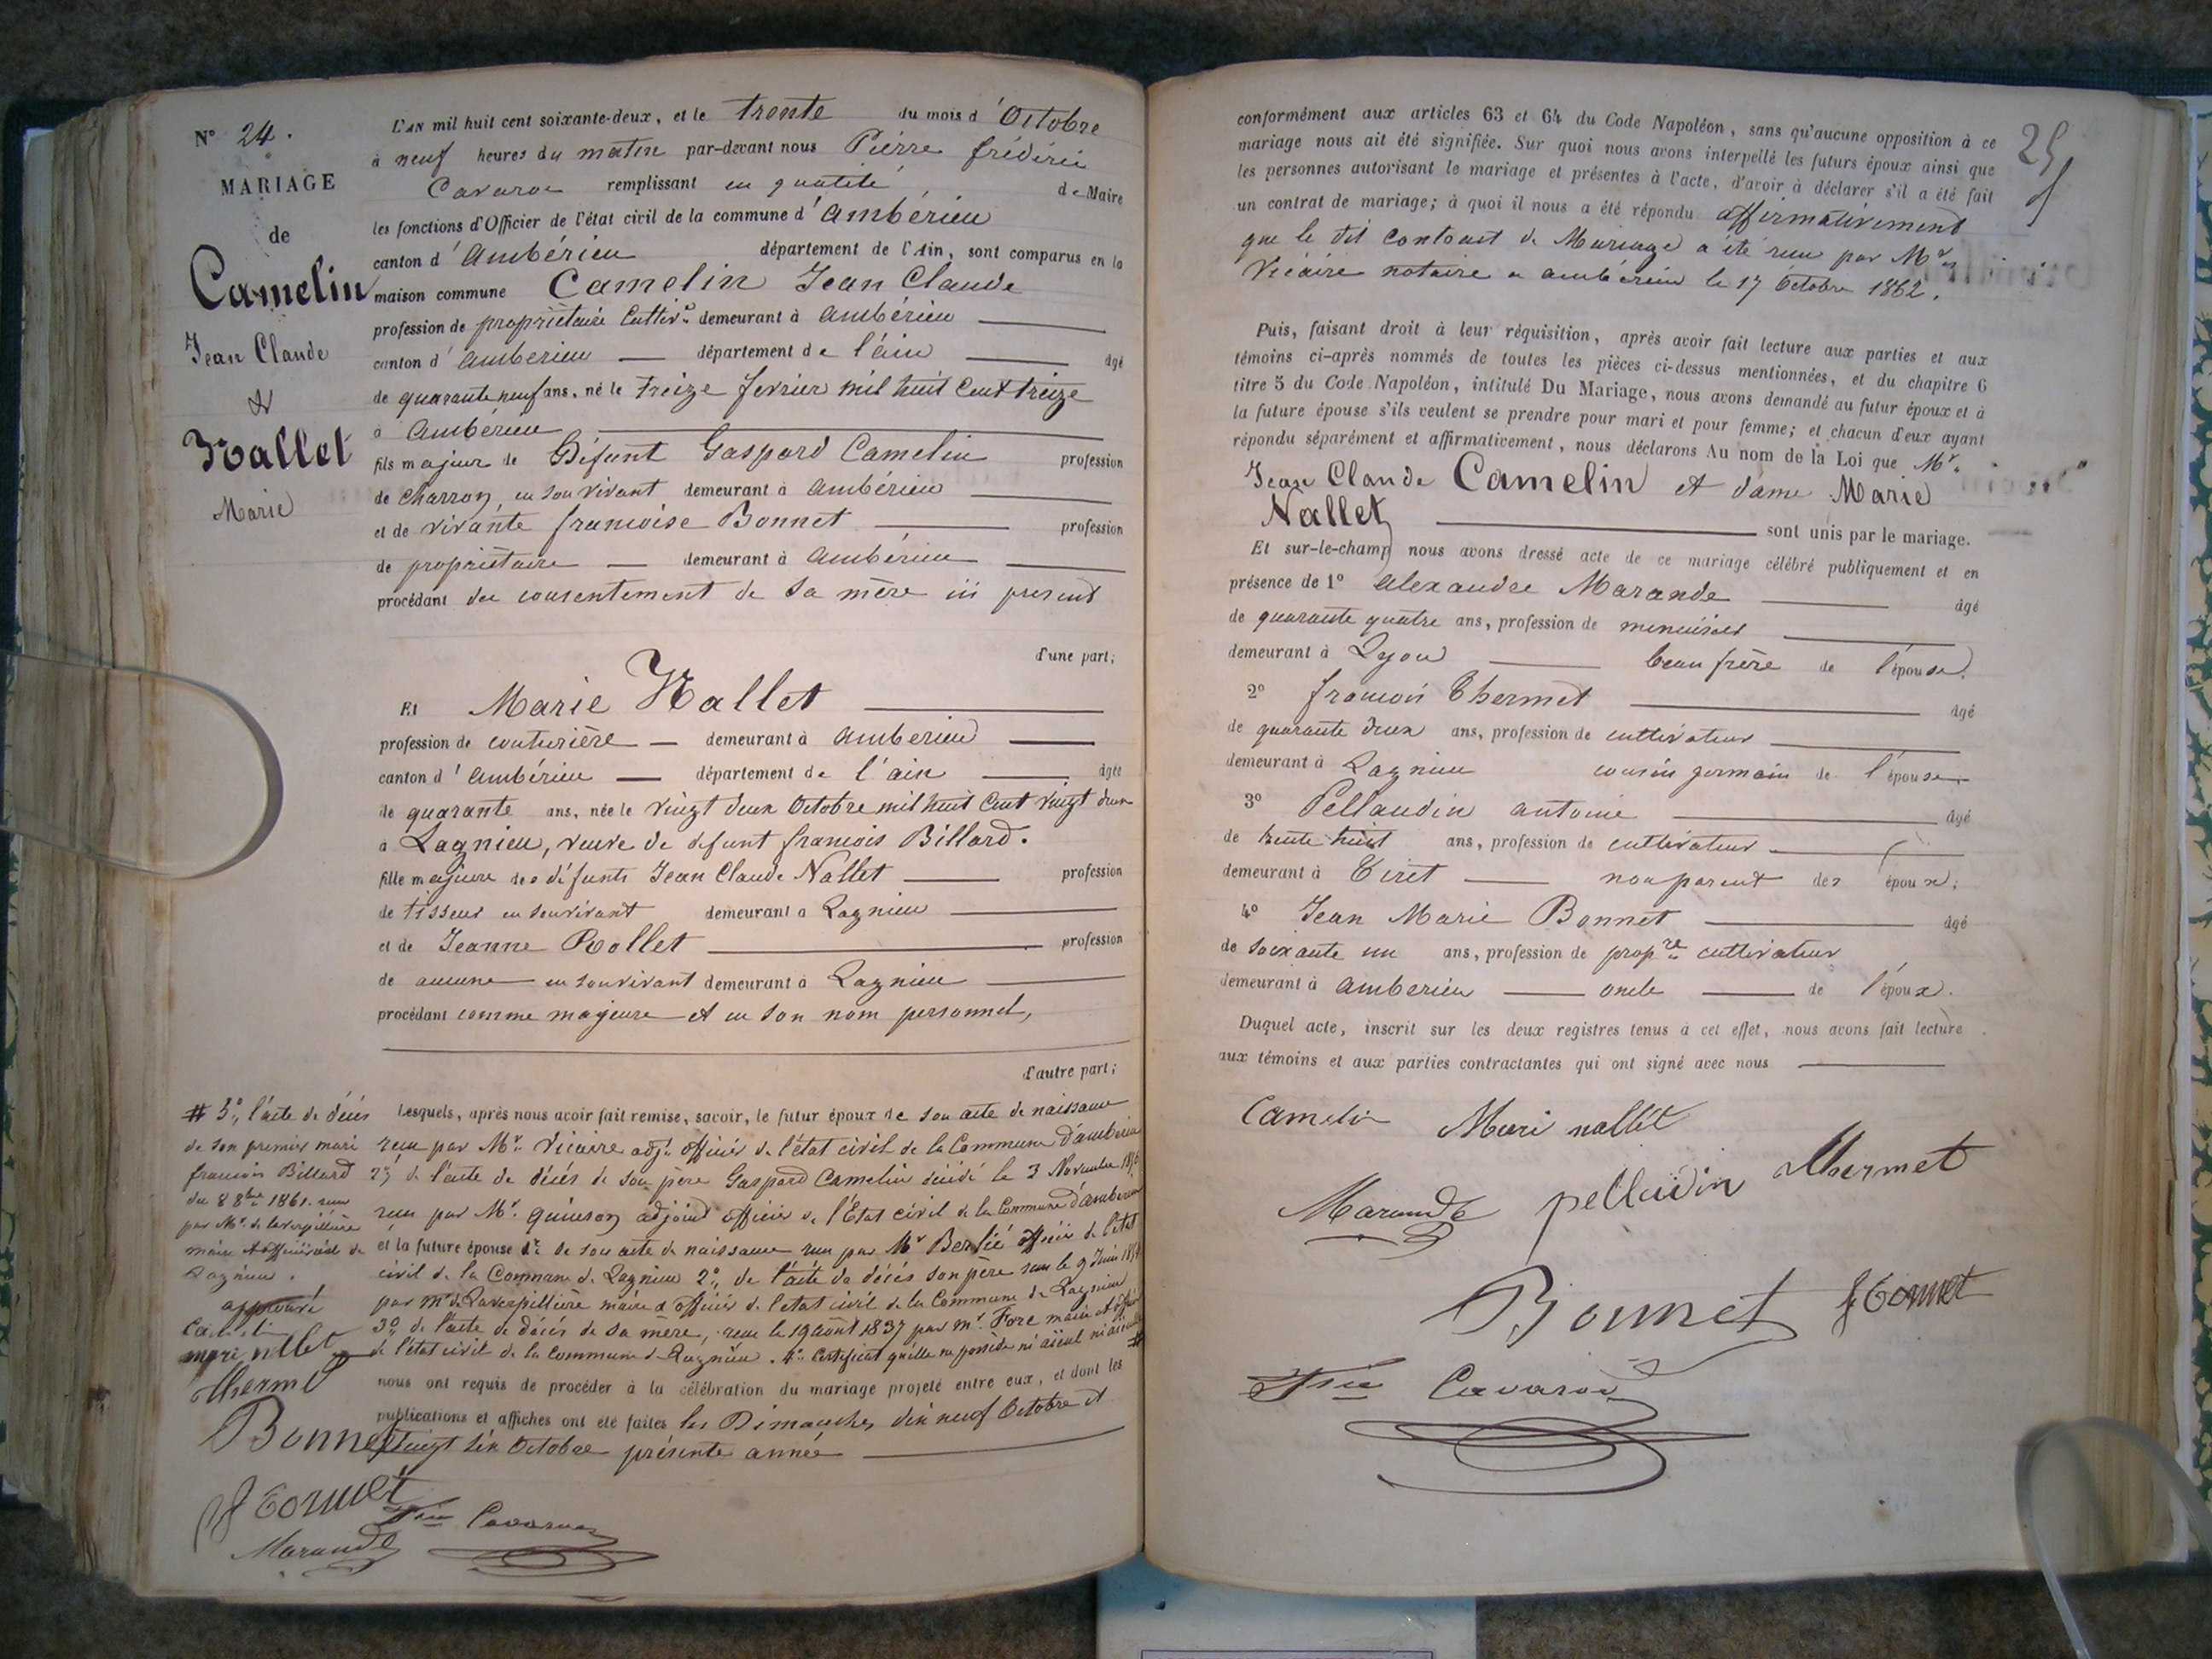 N° 24.
MARIAGE
de
Camelin
Jean Claude
&
Nallet
Marie
L'AN mil huit cent soixante-deux, et le trente du mois d'Octobre
à neuf heures du matin par-devant nous Pierre frédéric
Cavaroc remplissant en qualité de Maire
les fonctions d'Officier de l'état civil de la commune d'ambérieu
canton d'ambérieu département de l'Ain, sont comparus en la
maison commune Camelin Jean Claude
profession de propriétaire Cultivr demeurant à ambérieu
canton d'ambérieu département de l'ain âgé
de quarante neuf ans, né le treize fevrier mil huit Cent treize
à ambérieu
fils majeur de Défunt Gaspard Camelin profession
de charron en son vivant demeurant à ambérieu
et de vivante francoise Bonnet profession
de propriétaire demeurant à ambérieu
procédant du consentement de sa mère ici present
d'une part;
Et Marie Nallet
profession de couturière demeurant à amberieu
canton d'ambérieu département de l'ain âgée
de quarante ans, née le vingt deux Octobre mil huit Cent vingt deux
à Lagnieu, veuve de defunt francois Billard.
fille majeure des défunts Jean Claude Nallet profession
de tisseur en son vivant demeurant à Lagnieu
et de Jeanne Rollet profession
de aucune en son vivant demeurant à Lagnieu
procédant comme majeure et en son nom personnel,
d'autre part;
Lesquels, après nous avoir fait remise, savoir, le futur époux de son acte de naissance
recu par Mr. Vicaire adjt. officier de l'état civil de la Commune d'amberieu
2° de l'acte de décés de son père Gaspard Camelin décédé le 3 Novembre
recu par Mr. quinson adjoint officier de l'État civil de la Commune d'amberieu
et la future épouse 1° de son acte de naissance recu par Mr Berlié officier de l'état
civil de la Commune de Lagnieu 2°, de l'acte de décés son père recu le 9 Juin
par mr de Laverpillière maire & officier de l'etat civil de la Commune de Lagnieu
3° de l'acte de décés de sa mère, recu le 19 août 1837 par mr. Fore maire et officier
de l'état civil de la Commune de Lagnieu. 4° Certificat qu'elle ne possède ni aïeul ni aïeule #
nous ont requis de procéder à la célébration du mariage projeté entre eux, et dont les
publications et affiches ont été faites les Dimanches dix neuf Octobre et
vingt six Octobre présente année
# 5°, l'acte de décés
de son premier mari
francois Billard
du 8 8bre 1861. recu
par Mr. de laverpillière
maire et officier de
Lagnieu.
approuvé
Camelin
mari nllet
Thermet
Bonnet
Marande
Fric Cavaroc
25
conformément aux articles 63 et 64 du Code Napoléon, sans qu'aucune opposition à ce
mariage nous ait été signifiée. Sur quoi nous avons interpellé les futurs époux ainsi que
les personnes autorisant le mariage et présentes à l'acte, d'avoir à déclarer s'il a été fait
un contrat de mariage; à quoi il nous a été répondu affirmativement
que le dit Contract de Mariage a été recu par Mr
Vicaire notaire a ambérieu le 17 Octobre 1862.
Puis, faisant droit à leur réquisition, après avoir fait lecture aux parties et aux
témoins ci-après nommés de toutes les pièces ci-dessus mentionnées, et du chapitre 6
titre 5 du Code Napoléon, intitulé Du Mariage, nous avons demandé au futur époux et à
la future épouse s'ils veulent se prendre pour mari et pour femme; et chacun d'eux ayant
répondu séparément et affirmativement, nous déclarons Au nom de la Loi que Mr.
Jean Claude Camelin et dame Marie
Nallet sont unis par le mariage.
Et sur-le-champ nous avons dressé acte de ce mariage célébré publiquement et en
présence de 1° alexandre Marande âgé
de quarante quatre ans, profession de menuisier
demeurant à Lyon beau frère de l'épouse.
2° francois Thermet âgé
de quarante deux ans, profession de cultivateur
demeurant à Lagnieu cousin germain de l'épouse
3° Pellaudin antoine âgé
de trente huit ans, profession de cultivateur
demeurant à Tiret non parent des époux;
4° Jean Marie Bonnet âgé
de soixante un ans, profession de propre cultivateur
demeurant à amberieu oncle de l'époux.
Duquel acte, inscrit sur les deux registres tenus à cet effet, nous avons fait lecture
aux témoins et aux parties contractantes qui ont signé avec nous
Camelin Mari nallet
Marande pellaudin Thermet
Bonnet
Fric Cavaroc